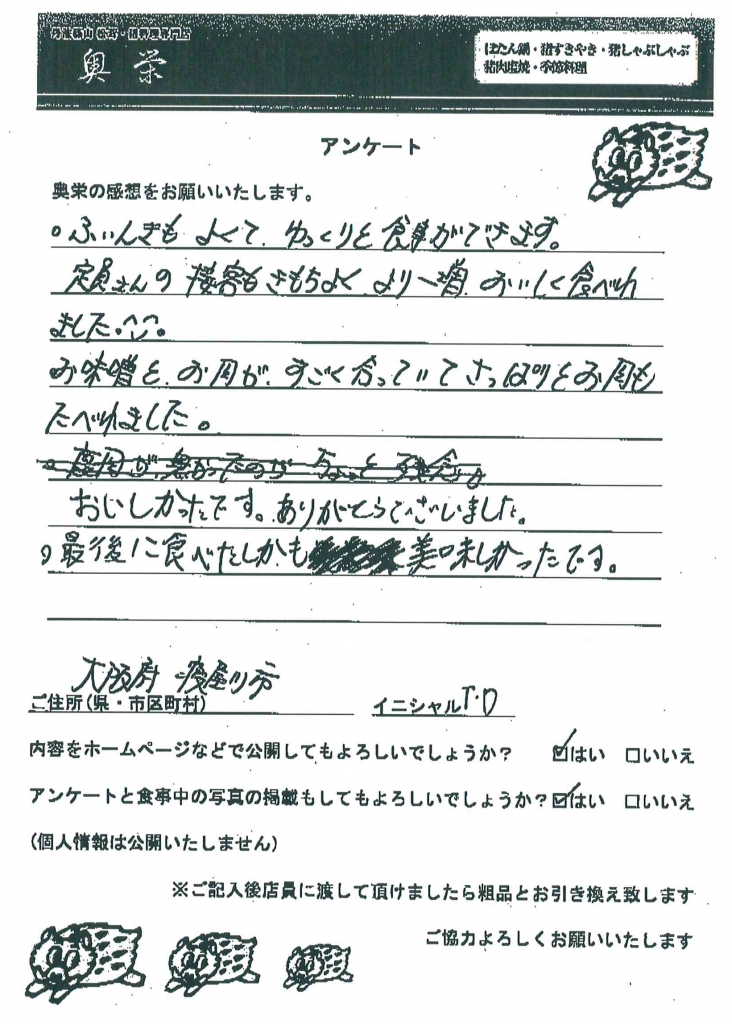 丹波篠山 松茸・猪料理専門店
奥栄
ぼたん鍋・猪すきやき・猪しゃぶしゃぶ
猪肉塩焼・季節料理
アンケート
奥栄の感想をお願いいたします。
○ふいんきも よくて、ゆっくりと食事ができます。
定員さんの 接客もきもちよく より一増 おいしく食べれ
ました。^^。
お味噌と、お肉が、すごく合っていてさっぱりとお肉も
たべれました。
おいしかったです。ありがとうございました。
○最後に食べたしかも 美味しかったです。
大阪府 寝屋川市
ご住所(県・市区町村)
イニシャル T・D
内容をホームページなどで公開してもよろしいでしょうか? ☑はい □いいえ
アンケートと食事中の写真の掲載もしてもよろしいでしょうか?☑はい □いいえ
(個人情報は公開いたしません)
※ご記入後店員に渡して頂けましたら粗品とお引き換え致します
ご協力よろしくお願いいたします